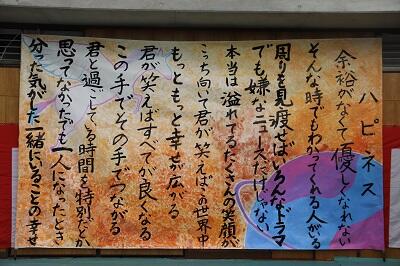 ハピネス
余裕がなくて優しくなれない
そんな時でもわかってくれる人がいる
周りを見渡せばいろんなドラマ
でも嫌なニュースだけじゃない
本当は溢れてるたくさんの笑顔が
こっち向いて君が笑えばこの世界中
もっともっと幸せが広がる
君が笑えばすべてが良くなる
この手でその手でつながる
君と過ごしている時間を特別だとか
思ってなかったでも一人になったとき
分た気がした一緒にいることの幸せ